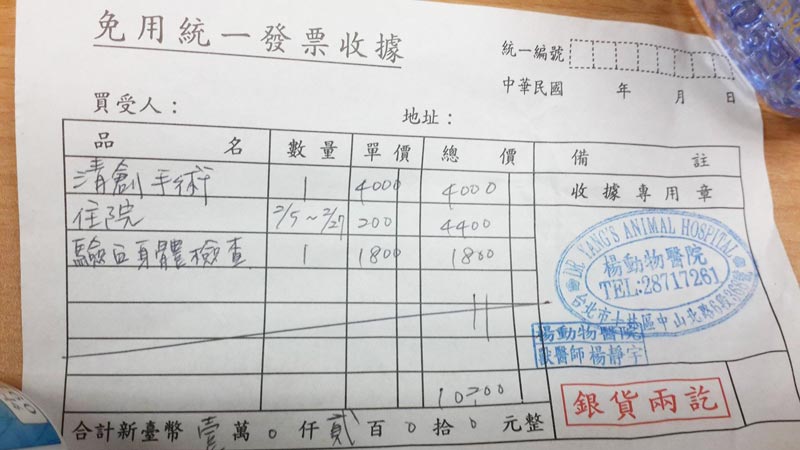 免用統一發票收據
統一編號
中華民國 年 月 日
買受人： 地址：
品名 數量 單價 總價 備註
清創手術 1 4000 4000 收據專用章
住院 2/5~2/27 200 4400
驗血身體檢查 1 1800 1800
DR. YANG'S ANIMAL HOSPITAL
楊動物醫院
TEL:28717261
台北市士林區中山北路6段
楊動物醫院
獸醫師 楊靜宇
10200
銀貨兩訖
合計新臺幣 壹 萬 0 仟 貳 百 0 拾 0 元整